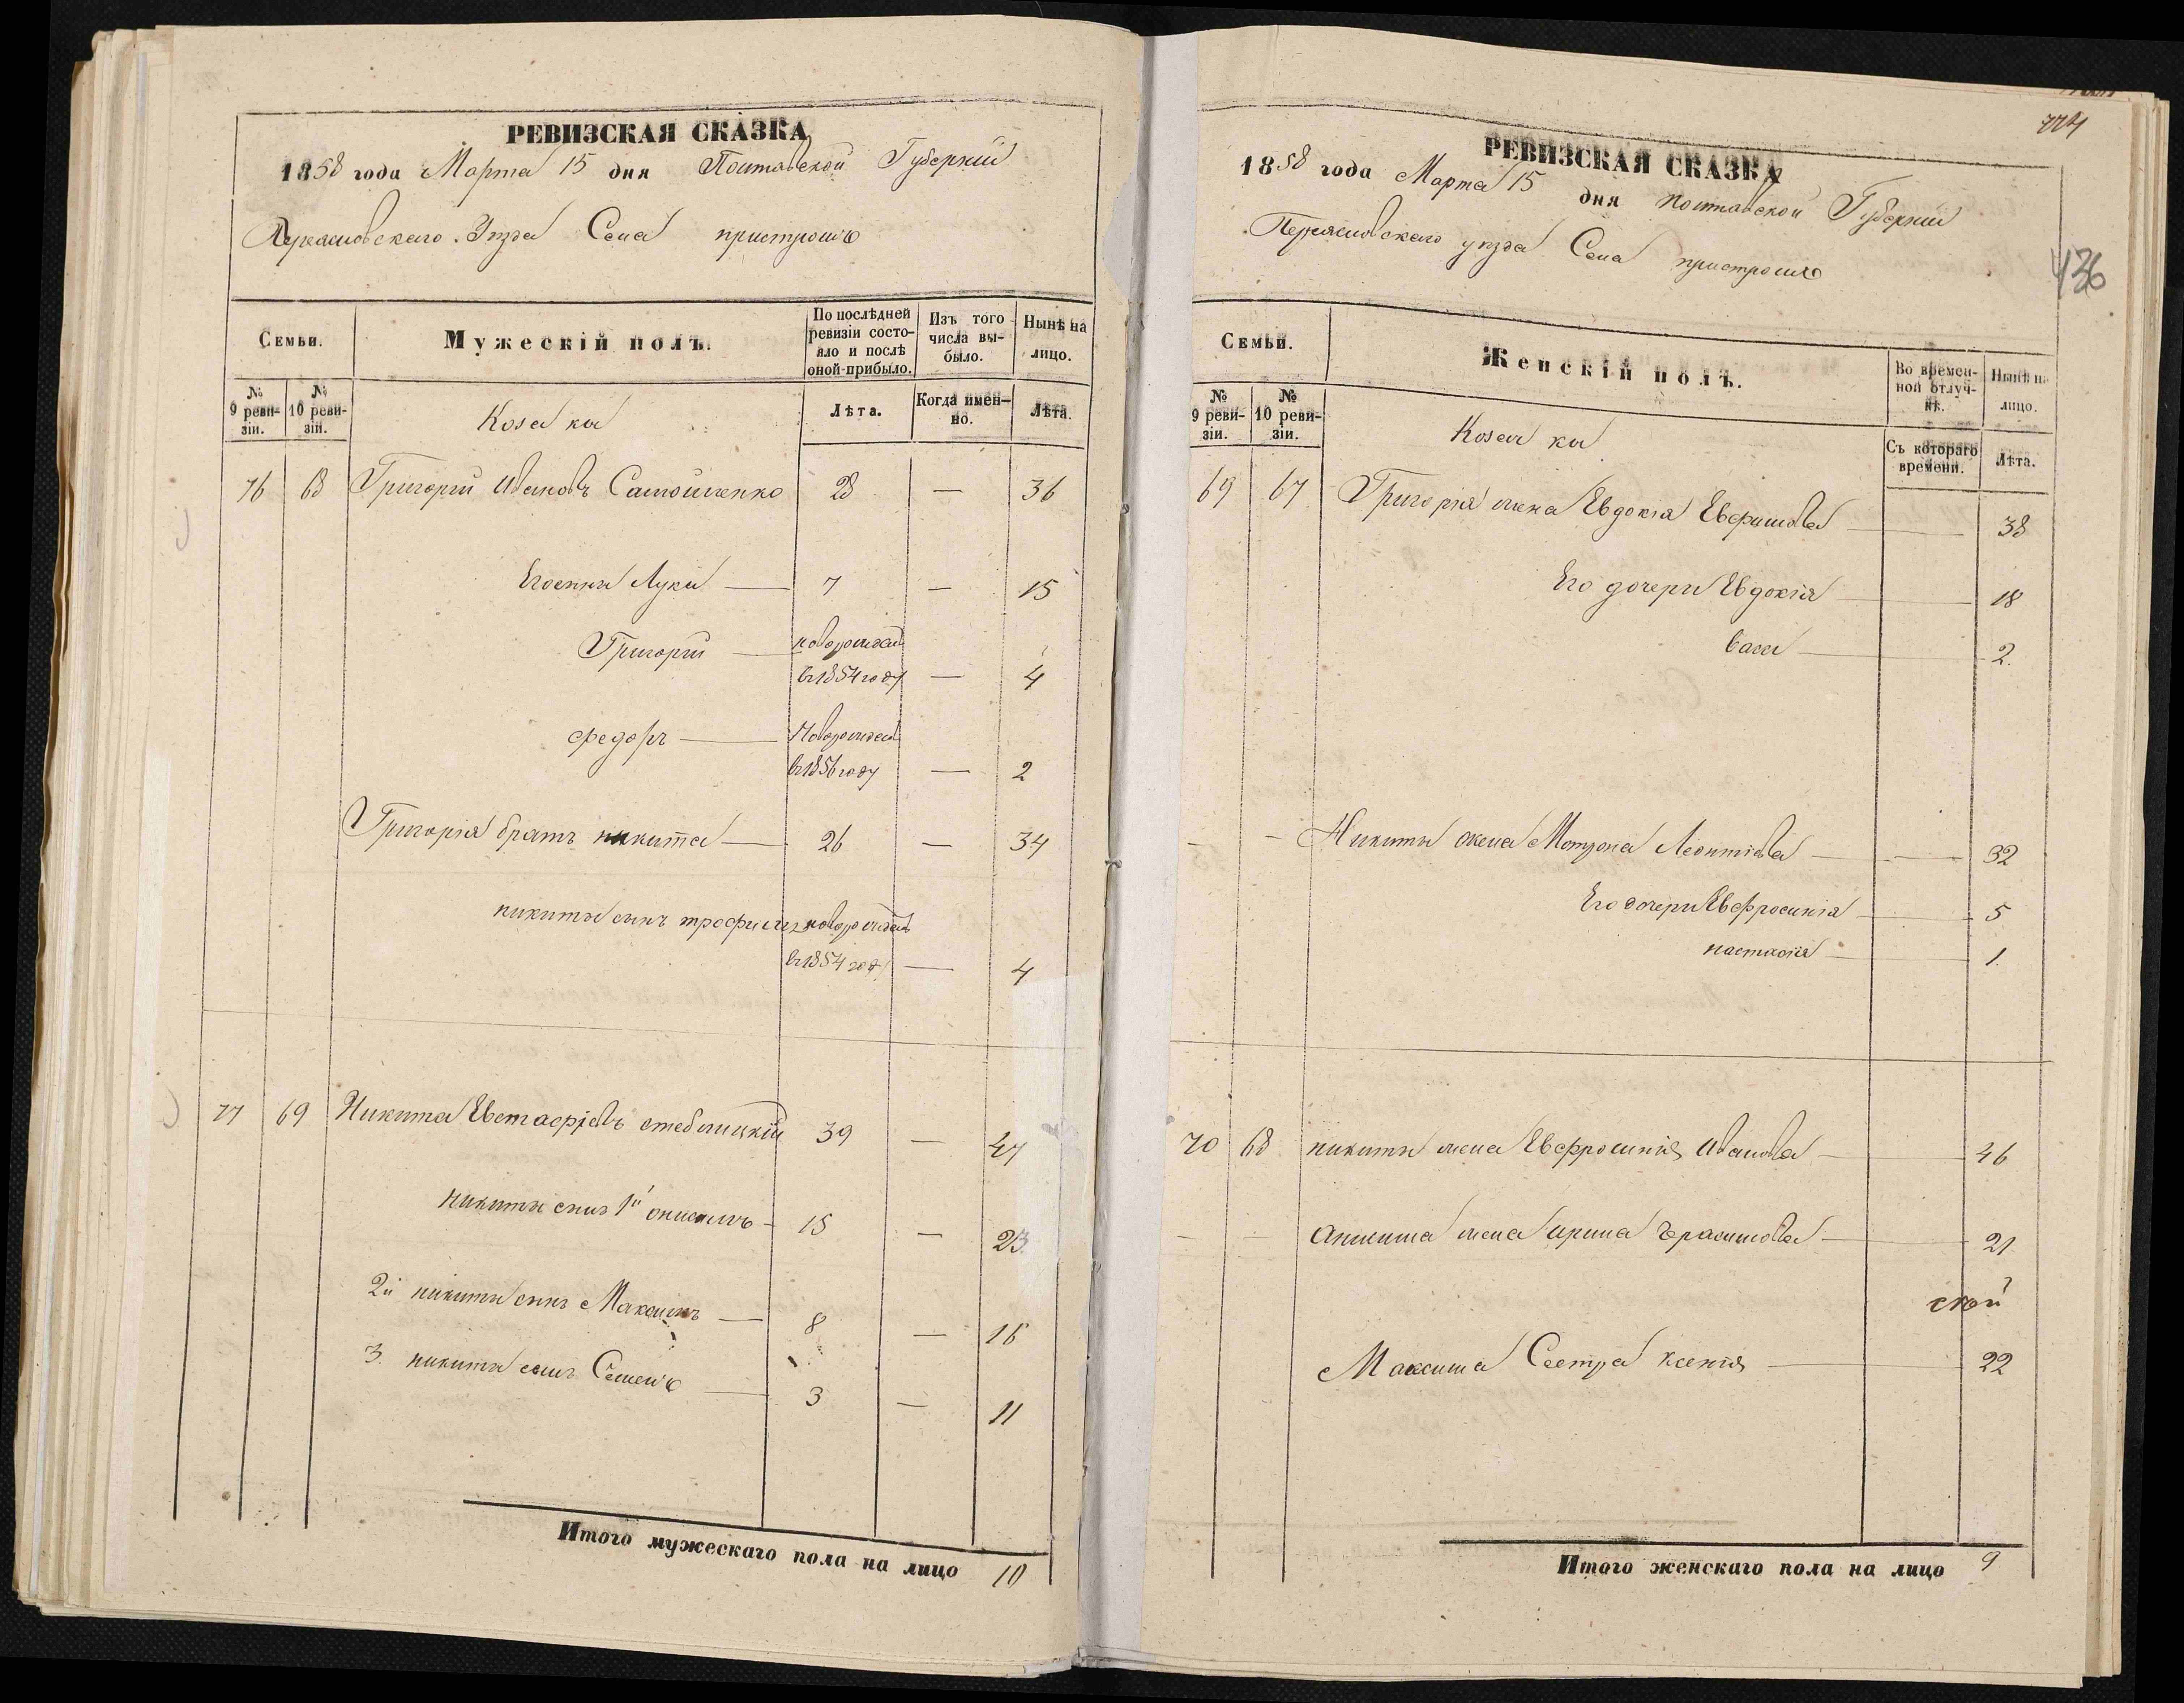 РЕВИЗСКАЯ СКАЗКА
1858 года Марта 15 дня Полтавской Губерніи
Переяславскаго Уѣзда Села пристромъ
Семьи. Мужескій полъ. По послѣдней ревизіи состояло и послѣ оной прибыло. Изъ того числа выбыло. Нынѣ на лицо.
№ 9 ревизіи. № 10 ревизіи. Козаки Лѣта. Когда именно. Лѣта.
76 68 Григорій Ивановъ Самойленко 28 — 36
Его сыны Лука — 7 — 15
Григорій — новорожден
въ 1854 году — 4
федоръ — Новорожден
въ 1856 году — 2
Григорія братъ никита — 26 — 34
никиты сынъ трофимъ новорожден
въ 1854 году — 4
77 69 Никита Евстафіевъ стеблицкій 39 — 47
никиты сынъ 1й онисимъ - 15 — 23
2й никиты сынъ Максимъ — 8 — 16
3. никиты сынъ Семенъ — 3 — 11
Итого мужескаго пола на лицо 10
774
436
РЕВИЗСКАЯ СКАЗКА
1858 года Марта 15 дня полтавской Губерніи
Переяславскаго уѣзда Села пристромъ
Семьи. Женскій полъ. Во временной отлучкѣ. Нынѣ на лицо.
№ 9 ревизіи. № 10 ревизіи. Козачки Съ котораго времени. Лѣта.
69 67 Григорія жена Евдокія Ефимова — 38
Его дочери Евдокія — 18
васса — 2.
- - Никиты жена Мотрона Леонтіева — 32
Его дочери Евфросинія — 5
настасія — 1.
70 68 никиты жена Евфросинія Иванова — 46
- - Анисима жена ирина Герасимова — 21
Максима Сестра ксенія — 22
Итого женскаго пола на лицо 9